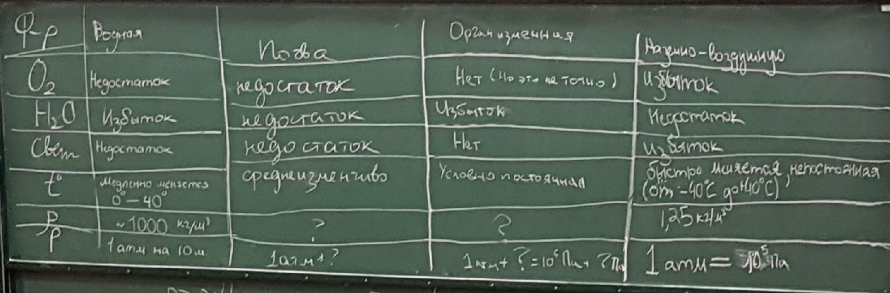 Ф-р Водная Почва Организменная Наземно-воздушную
O₂ Недостаток недостаток Нет (Но это не точно) избыток
H₂O Избыток недостаток Избыток Недостаток
Свет Недостаток недостаток Нет избыток
t° Медленно меняется среднеизменчиво Условно постоянная быстро меняется, непостоянная
0°-40° (от -40°C до +40°C)
ρ ~1000 кг/м³ ? ? 1,25 кг/м³
P 1 атм на 10 м 1 атм + ? 1 атм + ? = 10⁵ Па + ? Па 1 атм = 10⁵ Па